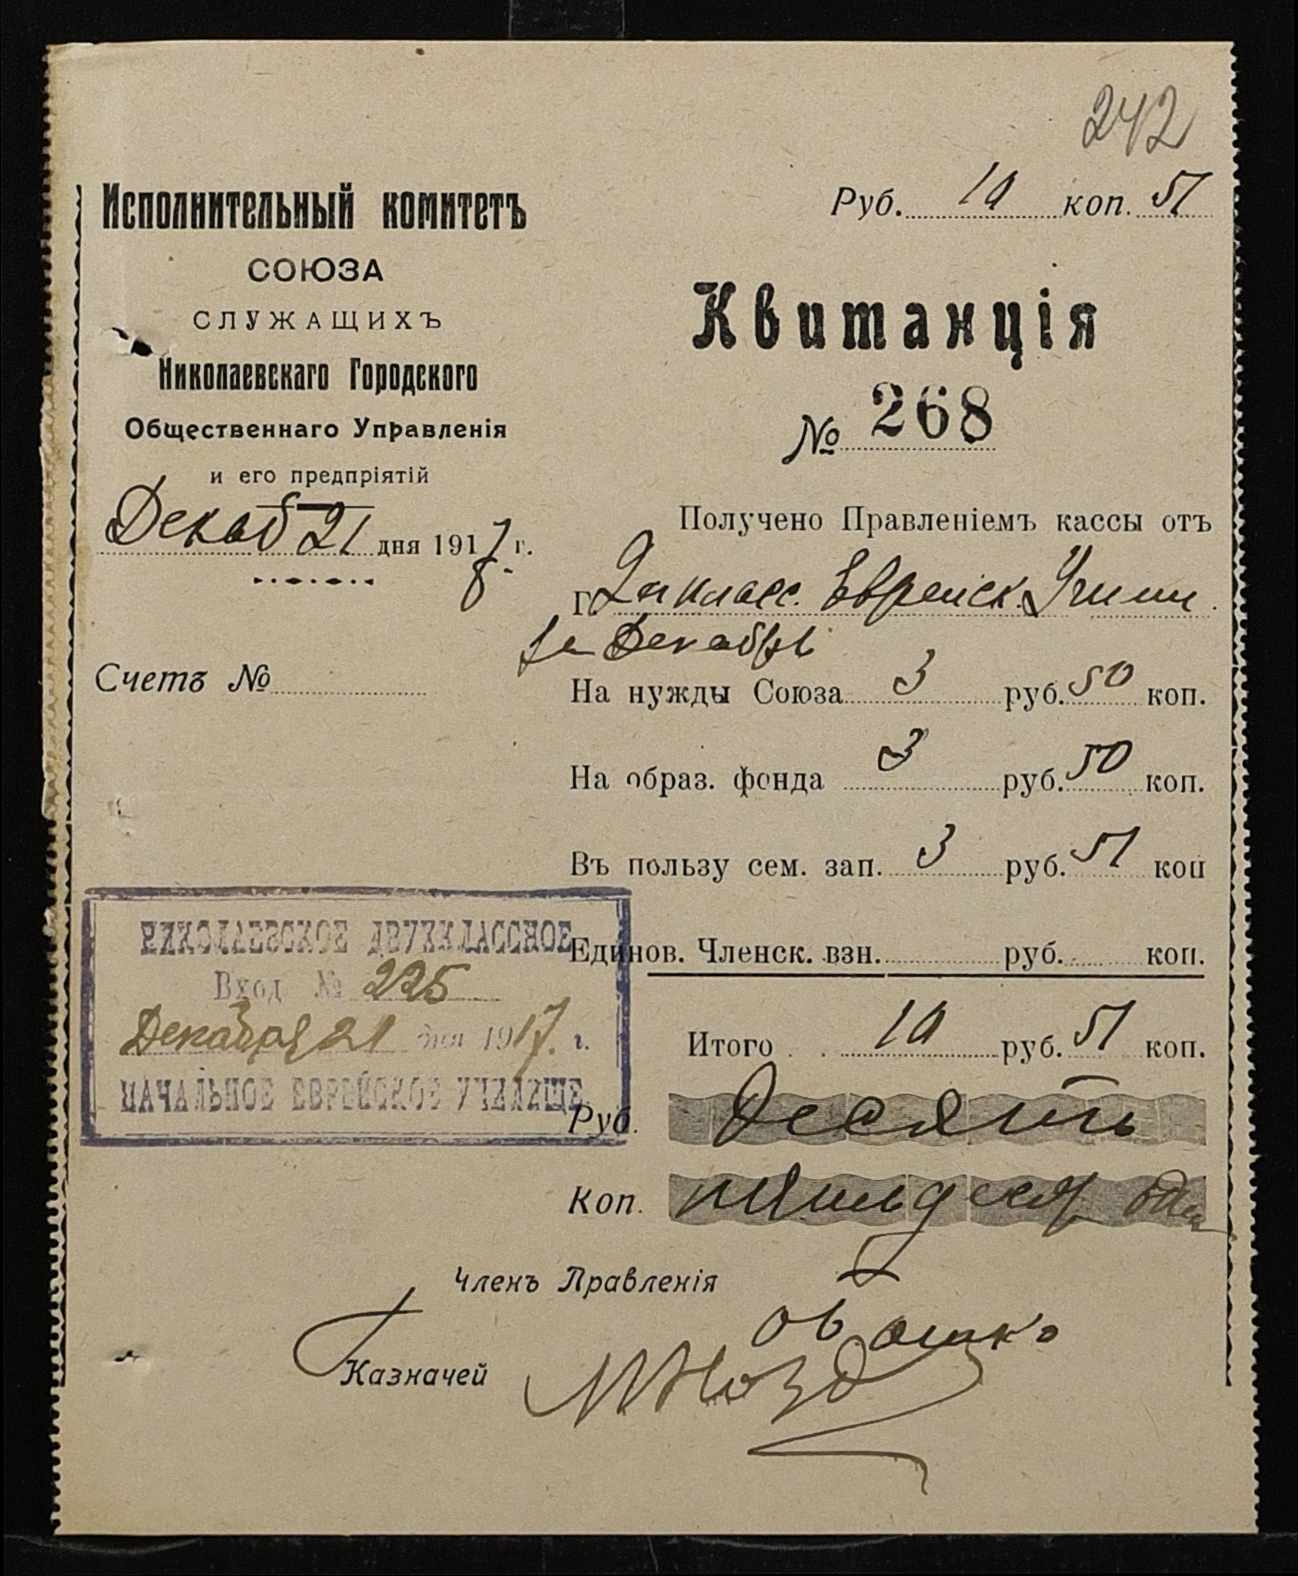 242
Исполнительный комитетъ
СОЮЗА
СЛУЖАЩИХЪ
Николаевскаго Городского
Общественнаго Управленія
и его предпріятій
Декаб 21 дня 1917 г.
Счетъ №
Руб. 10 коп. 51
Квитанція
№ 268
Получено Правленіемъ кассы отъ
Г 2х класс. Еврейск. Учили
за Декабрь
На нужды Союза 3 руб. 50 коп.
На образ. фонда 3 руб. 50 коп.
Въ пользу сем. зап. 3 руб. 51 коп
Единов. Членск. взн. руб. коп.
Итого . . 10 руб. 51 коп.
Руб. Десять
Коп. пятьдесят один
НИКОЛАЕВСКОЕ ДВУХКЛАССНОЕ
Вход № 225
Декабря 21 дня 1917 г.
НАЧАЛЬНОЕ ЕВРЕЙСКОЕ УЧИЛИЩЕ
Членъ Правленія
Казначей